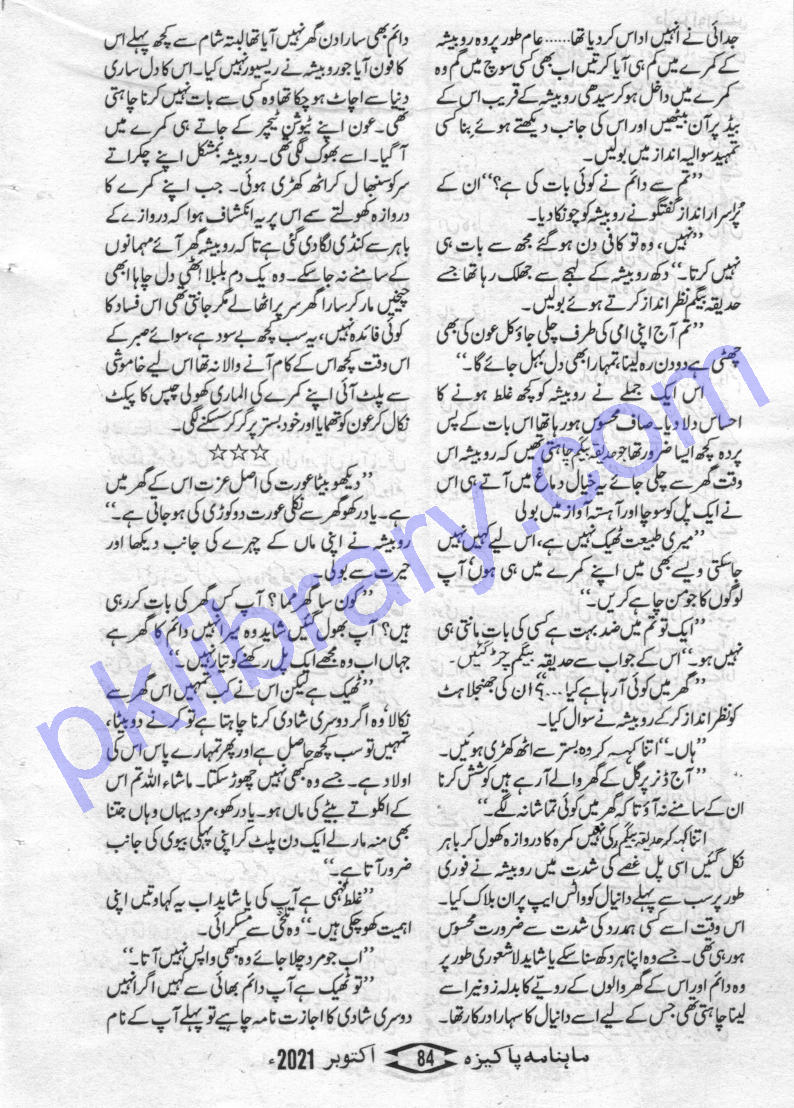 جدائی نے انہیں اداس کردیا تھا...... عام طور پر وہ روبیشہ
کے کمرے میں کم ہی آیا کرتیں اب بھی کسی سوچ میں گم وہ
کمرے میں داخل ہو کر سیدھی روبیشہ کے قریب اس کے
بیڈ پر آن بیٹھیں اور اس کی جانب دیکھتے ہوئے بِنا کسی
تمہید سوالیہ انداز میں بولیں۔
”تم سے دائم نے کوئی بات کی ہے؟“ ان کے
پُراسرار انداز گفتگو نے روبیشہ کو چونکا دیا۔
”نہیں، وہ تو کافی دن ہوگئے مجھ سے بات ہی
نہیں کرتا۔“ دکھ روبیشہ کے لہجے سے جھلک رہا تھا جسے
حدیقہ بیگم نظر انداز کرتے ہوئے بولیں۔
”تم آج اپنی امی کی طرف چلی جاؤ کل عون کی بھی
چھٹی ہے دو دن رہ لینا، تمہارا بھی دل بہل جائے گا۔“
اس ایک جملے نے روبیشہ کو کچھ غلط ہونے کا
احساس دلا دیا۔ صاف محسوس ہو رہا تھا اس بات کے پس
پردہ کچھ ایسا ضرور تھا جو حدیقہ بیگم چاہتی تھیں کہ روبیشہ اس
وقت گھر سے چلی جائے یہ خیال دماغ میں آتے ہی اس
نے ایک پل کو سوچا اور آہستہ آواز میں بولی
”میری طبیعت ٹھیک نہیں ہے، اس لیے کہیں نہیں
جاسکتی ویسے بھی میں اپنے کمرے میں ہی ہوں، آپ
لوگوں کا جو من چاہے کریں۔“
”ایک تو تم میں ضد بہت ہے کسی کی بات مانتی ہی
نہیں ہو۔“ اس کے جواب سے حدیقہ بیگم چڑ گئیں۔
”گھر میں کوئی آرہا ہے کیا...؟“ ان کی جھنجلاہٹ
کو نظر انداز کر کے روبیشہ نے سوال کیا۔
”ہاں۔“ اتنا کہہ کر وہ بستر سے اٹھ کھڑی ہوئیں۔
”آج ڈنر پر گل کے گھر والے آرہے ہیں کوشش کرنا
ان کے سامنے نہ آؤ تاکہ گھر میں کوئی تماشا نہ لگے۔“
اتنا کہہ کر حدیقہ بیگم رکی نہیں کمرہ کا دروازہ کھول کر باہر
نکل گئیں اسی پل غصے کی شدت میں روبیشہ نے فوری
طور پر سب سے پہلے دانیال کو واٹس ایپ پر ان بلاک کیا۔
اس وقت اسے کسی ہمدرد کی شدت سے ضرورت محسوس
ہو رہی تھی۔ جسے وہ اپنا ہر دکھ سنا سکے یا شاید لاشعوری طور پر
وہ دائم اور اس کے گھر والوں کے رویّے کا بدلہ زونیرا سے
لینا چاہتی تھی جس کے لیے اسے دانیال کا سہارا درکار تھا۔
دائم بھی سارا دن گھر نہیں آیا تھا البتہ شام سے کچھ پہلے اس
کا فون آیا جو روبیشہ نے ریسیور نہیں کیا۔ اس کا دل ساری
دنیا سے اچاٹ ہوچکا تھا وہ کسی سے بات نہیں کرنا چاہتی
تھی۔ عون اپنے ٹیوشن ٹیچر کے جاتے ہی کمرے میں
آگیا۔ اسے بھوک لگی تھی۔ روبیشہ بمشکل اپنے چکراتے
سر کو سنبھال کر اٹھ کھڑی ہوئی۔ جب اپنے کمرے کا
دروازہ کھولتے سے اس پر یہ انکشاف ہوا کہ دروازے کے
باہر سے کنڈی لگا دی گئی ہے تاکہ روبیشہ گھر آئے مہمانوں
کے سامنے نہ جاسکے۔ وہ یک دم بلبلا اٹھی دل چاہا ابھی
چیخیں مار کر سارا گھر سر پر اٹھالے مگر جانتی تھی اس فساد کا
کوئی فائدہ نہیں، یہ سب کچھ بے سود ہے، سوائے صبر کے
اس وقت کچھ اس کے کام آنے والا نہ تھا اس لیے خاموشی
سے پلٹ آئی اپنے کمرے کی الماری کھولی چپس کا پیکٹ
نکال کر عون کو تھمایا اور خود بستر پر گر کر سسکنے لگی۔
☆☆☆
”دیکھو بیٹا عورت کی اصل عزت اس کے گھر میں
ہے۔ یاد رکھو گھر سے نکلی عورت دو کوڑی کی ہوجاتی ہے۔“
روبیشہ نے اپنی ماں کے چہرے کی جانب دیکھا اور
حیرت سے بولی۔
”کون سا گھر مما؟ آپ کس گھر کی بات کر رہی
ہیں؟ آپ بھول گئیں شاید وہ میرا نہیں دائم کا گھر ہے
جہاں اب وہ مجھے ایک پل رکھنے کو تیار نہیں۔“
”ٹھیک ہے لیکن اس نے کب تمہیں اس گھر سے
نکالا، وہ اگر دوسری شادی کرنا چاہتا ہے تو کرنے دو بیٹا،
تمہیں تو سب کچھ حاصل ہے اور پھر تمہارے پاس اس کی
اولاد ہے۔ جسے وہ کبھی نہیں چھوڑ سکتا۔ ماشاء اللہ تم اس
کے اکلوتے بیٹے کی ماں ہو۔ یاد رکھو، مرد یہاں وہاں جتنا
بھی منہ مار لے ایک دن پلٹ کر اپنی پہلی بیوی کی جانب
ضرور آتا ہے۔“
”غلط فہمی ہے آپ کی یا شاید اب یہ کہاوتیں اپنی
اہمیت کھو چکی ہیں۔“ وہ تلخی سے مسکرائی۔
”اب جو مرد چلا جائے وہ کبھی واپس نہیں آتا۔“
”تو ٹھیک ہے آپ دائم بھائی سے کہیں اگر انہیں
دوسری شادی کا اجازت نامہ چاہیے تو پہلے آپ کے نام
ماہنامہ پاکیزہ 84 اکتوبر 2021ء
pklibrary.com